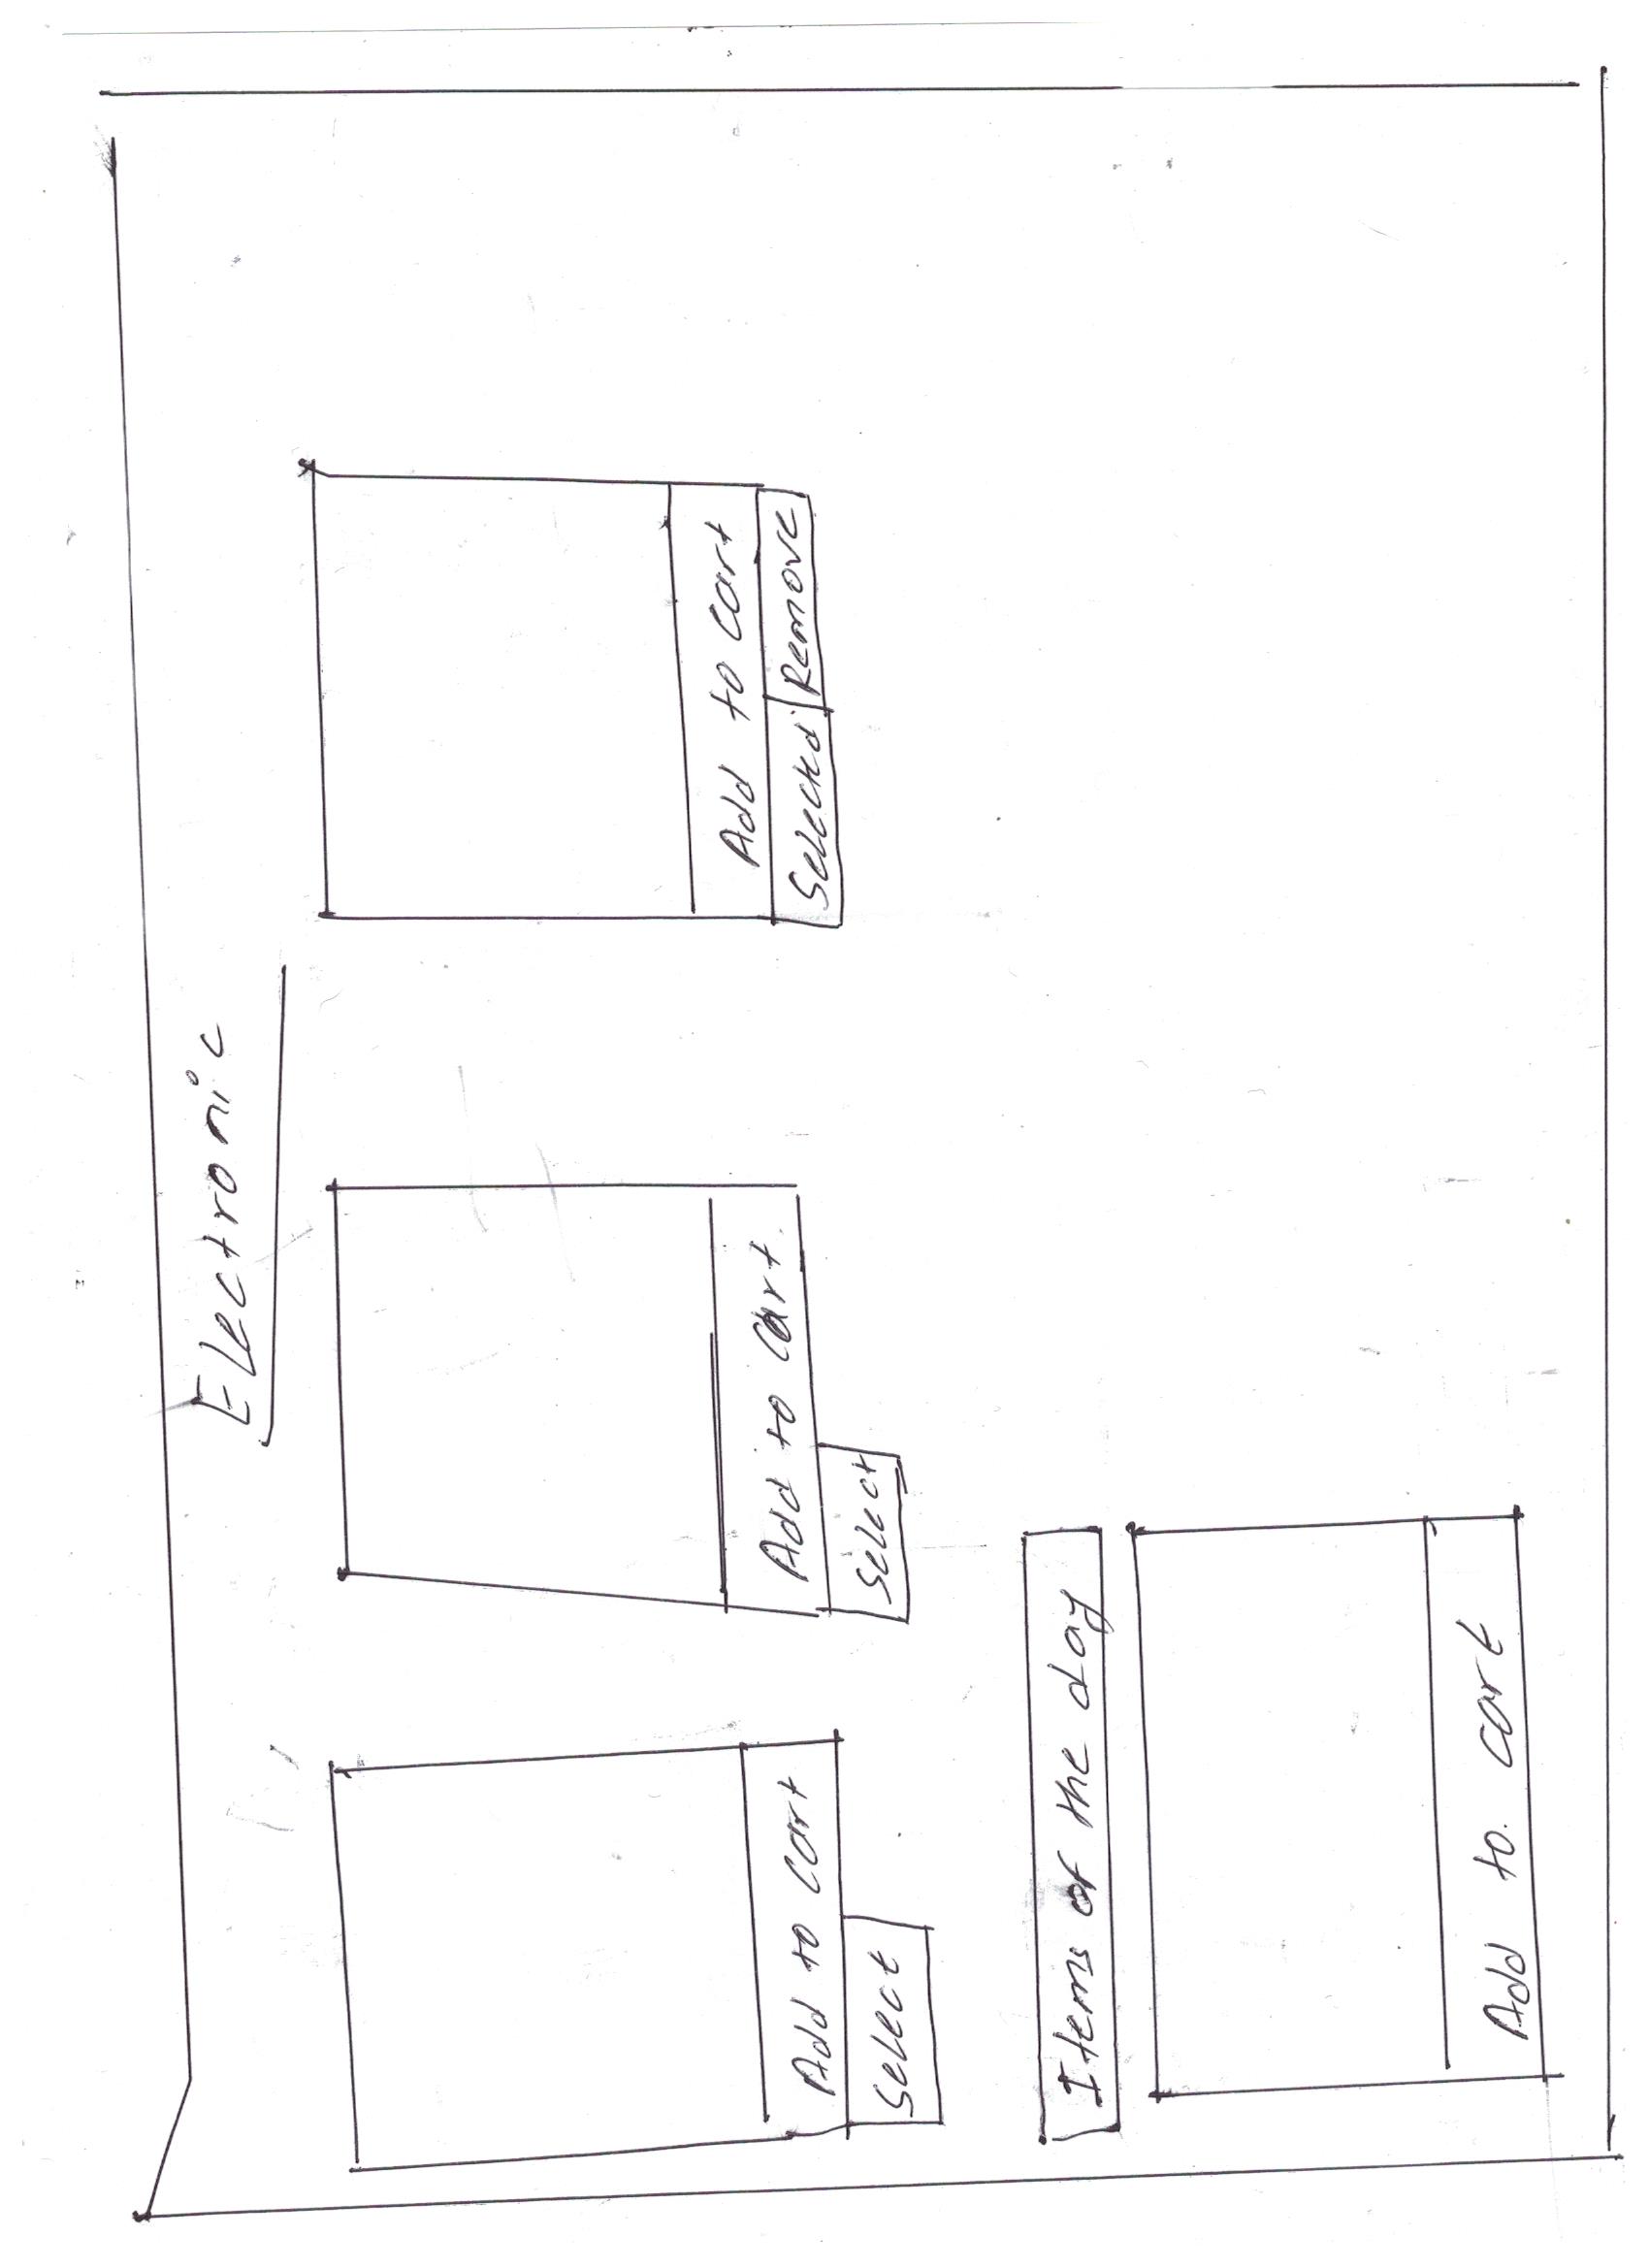 Electronic
Add to cart
Select
Add to cart.
Select
Add to cart
Selected
Remove
Items of the day
Add to. cart